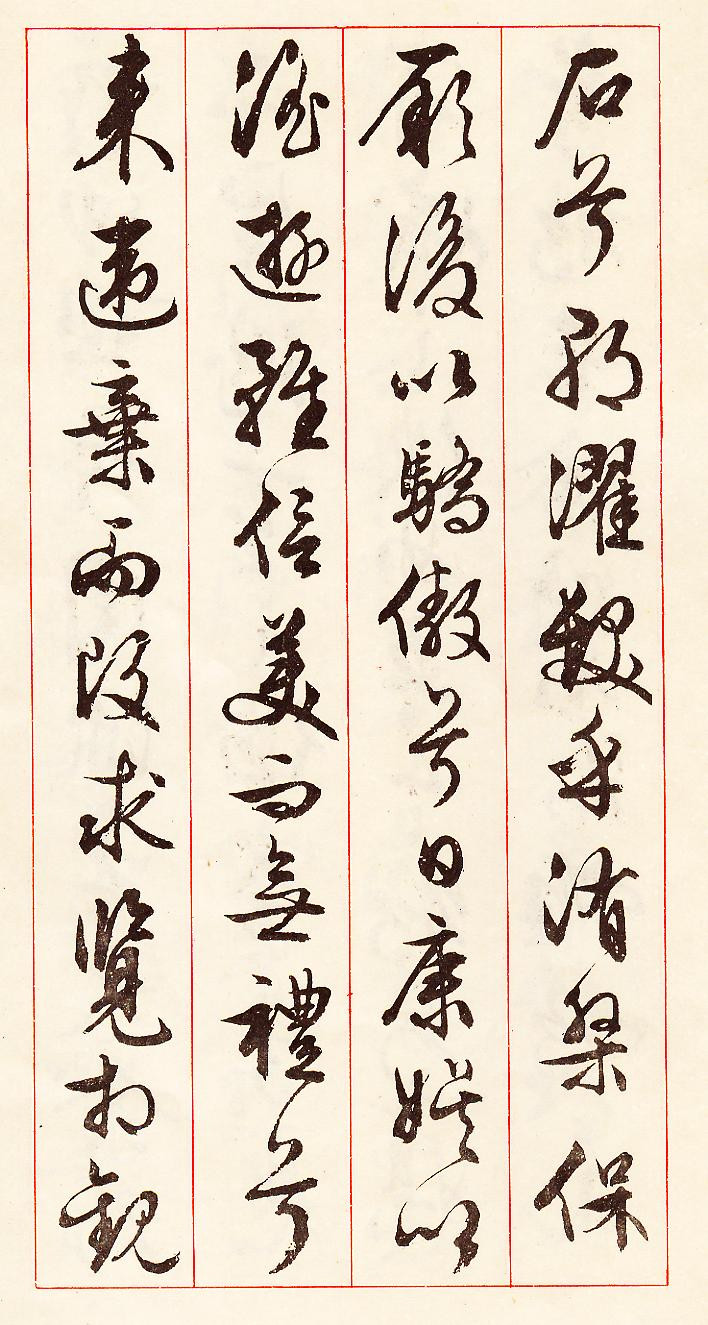 石兮朝濯髮乎洧槃保
厥後以驕傲兮日康娛以
淫遊雖信美而無禮兮
來違棄而改求覽相觀